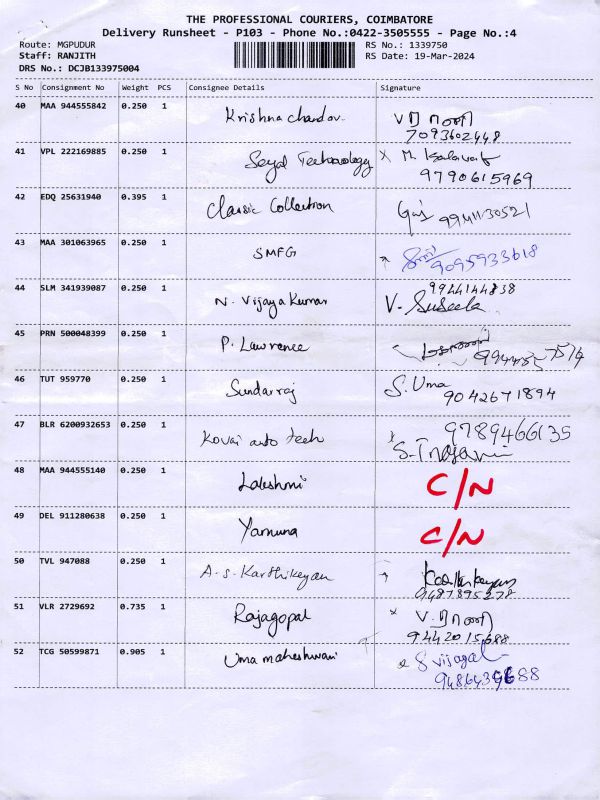 THE PROFESSIONAL COURIERS, COIMBATORE
Delivery Runsheet - P103 - Phone No.:0422-3505555 - Page No.:4
Route: MGPUDUR RS No.: 1339750
Staff: RANJITH RS Date: 19-Mar-2024
DRS No.: DCJB133975004
S No Consignment No Weight PCS Consignee Details Signature
40 MAA 944555842 0.250 1 Krishna chandar. V
7093602448
41 VPL 222169885 0.250 1 Seyd Technology X M.
9790615969
42 EDQ 25631940 0.395 1 Classic Collection
43 MAA 301063965 0.250 1 SMFG
9095933618
44 SLM 341939087 0.250 1 N. Vijaya Kumar 9944144838
V. Suseela
45 PRN 500048399 0.250 1 P. Lawrence
46 TUT 959770 0.250 1 Sundarraj S. Uma
9042671894
47 BLR 6200932653 0.250 1 Kovai auto tech 9789466135
48 MAA 944555140 0.250 1 Lakshmi C/N
49 DEL 911280638 0.250 1 Yamuna C/N
50 TVL 947088 0.250 1 A-S-Karthikeyan Karthikeyan
9487895278
51 VLR 2729692 0.735 1 Rajagopal x V.
9442015688
52 TCG 50599871 0.905 1 Uma maheshwari